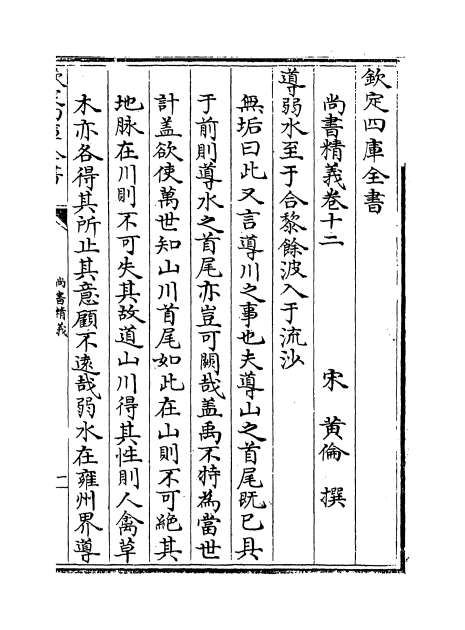 欽定四庫全書
尚書精義卷十二
宋 黃倫 撰
導弱水至于合黎餘波入于流沙
無垢曰此又言導川之事也夫導山之首尾既已具
于前則導水之首尾亦豈可闕哉盖禹不特為當世
計盖欲使萬世知山川首尾如此在山則不可絶其
地脉在川則不可失其故道山川得其性則人禽草
木亦各得其所止其意顧不遠哉弱水在雍州界導
欽定四庫全書
尚書精義
一